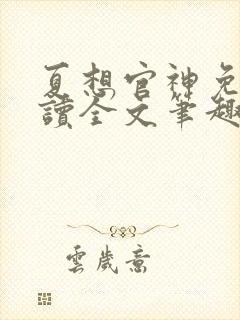 夏想官神免
讀全文筆趣
雲歲意